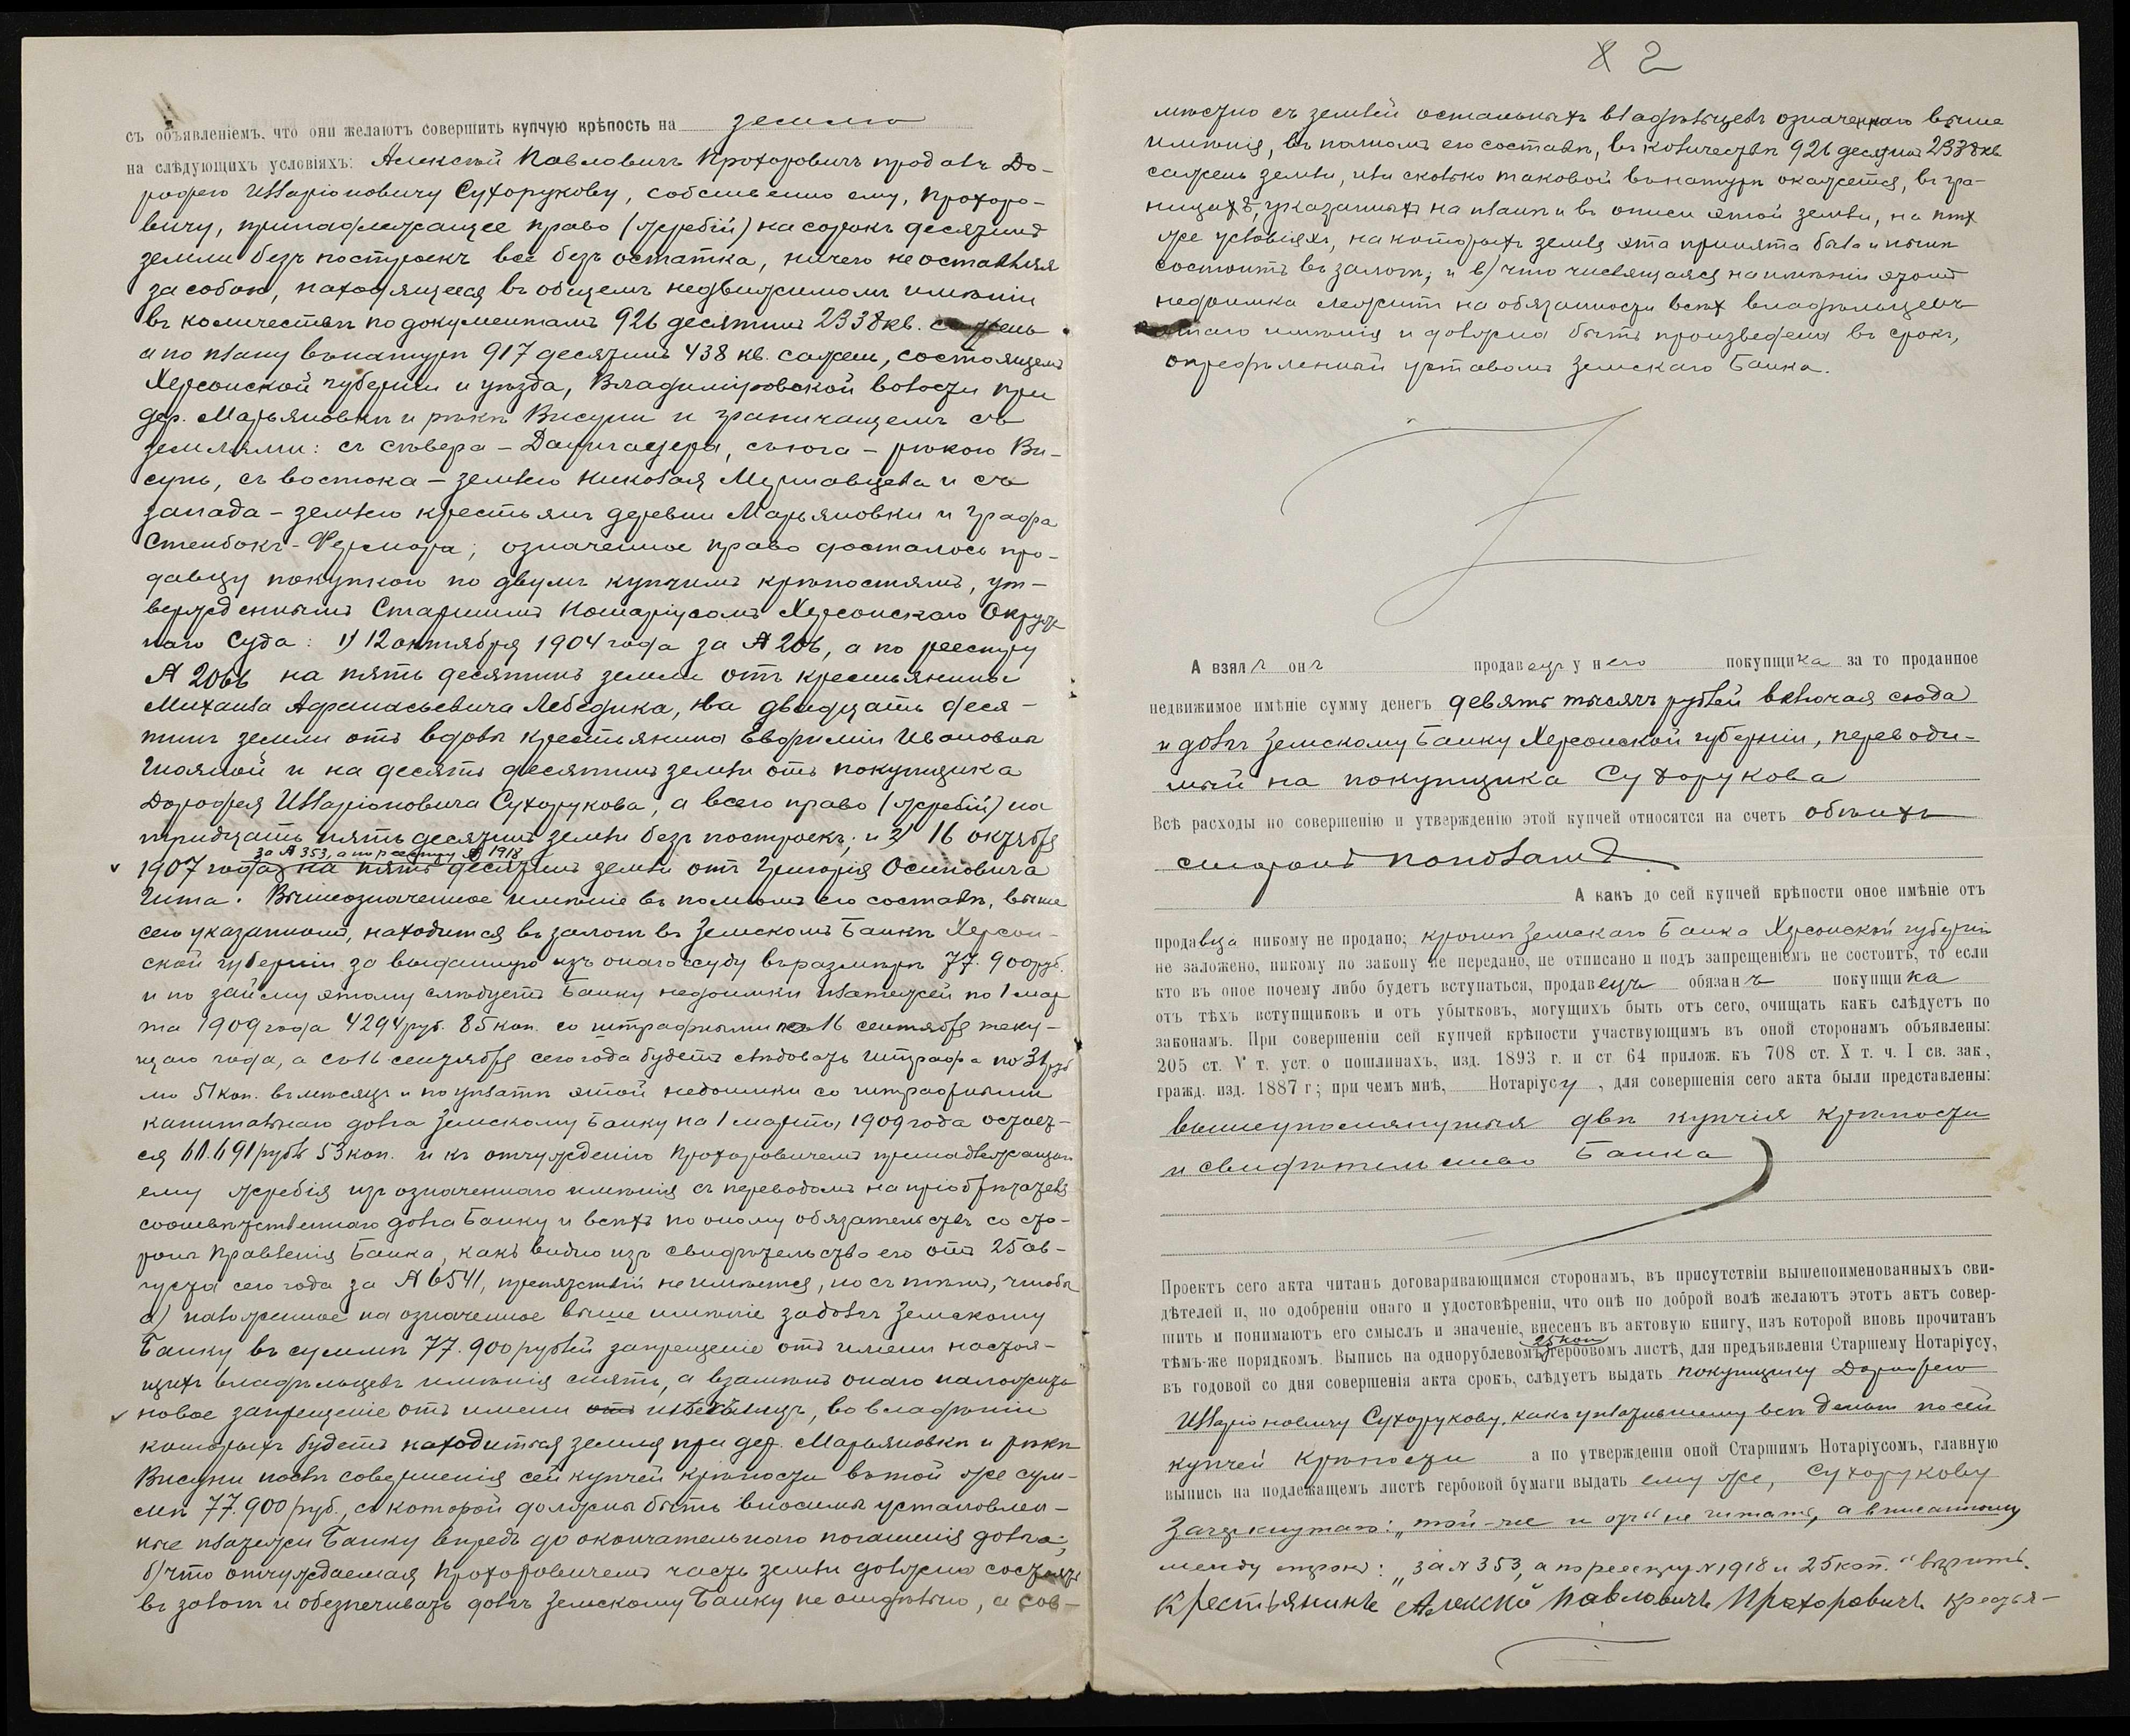 съ объявленіемъ, что они желаютъ совершить купчую крѣпость на землю
на слѣдующихъ условіяхъ: Алексѣй Павловичъ Прохоровичъ продалъ До-
рофею Илларіоновичу Сухорукову, собственно ему, Прохоро-
вичу, принадлежащее право (жребій) на сорокъ десятинъ
земли безъ построекъ все безъ остатка, ничего не оставляя
за собою, находящееся въ общемъ недвижимомъ имѣніи
въ количествѣ по документамъ 926 десятинъ 2338 кв. сажень
а по плану въ натурѣ 917 десятинъ 438 кв. сажень, состоящемъ
Херсонской губерніи и уѣзда, Владиміровской волости при
дер. Марьяновкѣ и рѣкѣ Висуни и граничащемъ съ
землями: съ сѣвера – съ юга – рѣкою Ви-
сунь, съ востока – землею Николая и съ
запада – землею крестьянъ деревни Марьяновки и графа
Стенбокъ-Фермора; означенное право досталось про-
давцу покупкою по двумъ купчимъ крѣпостямъ, ут-
вержденнымъ Старшимъ Нотаріусомъ Херсонскаго Окруж
наго Суда: 1) 12 октября 1904 года за № 206, а по реестру
№ 2066 на пять десятинъ земли отъ крестьянина
Михаила Афанасьевича Лебедика, на двадцать деся-
тинъ земли отъ вдовы крестьянина Евфиміи Ивановны
и на десять десятинъ земли отъ покупщика
Дорофея Илларіоновича Сухорукова, а всего право (жребій) на
тридцать пять десятинъ земли безъ построекъ; и 2) 16 октября
за № 353, а по реестру № 1918
1907 года на пять десятинъ земли отъ Григорія Осиповича
Гита. Вышеозначенное имѣніе въ полномъ его составѣ, выше
сего указанномъ, находится въ залогѣ въ Земскомъ Банкѣ Херсон-
ской губерніи за выданную изъ онаго ссуду въ размѣрѣ 77.900 руб.
и по займу этому слѣдуетъ Банку недоимки платежей по 1 мар
та 1909 года 4294 руб. 85 коп. со штрафными по 16 сентября теку-
щаго года, а съ 16 сентября сего года будетъ слѣдовать штрафа по 31 руб
51 коп. въ мѣсяцъ и по уплатѣ этой недоимки со штрафными
капитальнаго долга Земскому Банку на 1 марта 1909 года остает-
ся 60.691 рубль 53 коп. и къ отчужденію Прохоровичемъ принадлежащаго
ему жребія изъ означеннаго имѣнія съ переводомъ на пріобрѣтателя
соотвѣтственнаго долга Банку и всѣхъ по оному обязательствъ со сто-
роны Правленія Банка, какъ видно изъ свидѣтельства его отъ 25 ав-
густа сего года за № 6541, препятствій не имѣется, но съ тѣмъ, чтобы
а) наложенное на означенное выше имѣніе за долгъ Земскому
Банку въ суммѣ 77.900 рублей запрещеніе отъ имени настоя-
щихъ владѣльцевъ имѣнія снять, а взамѣнъ онаго наложить
новое запрещеніе отъ имени отъ тѣхъ лицъ, во владѣніи
которыхъ будетъ находиться земля при дер. Марьяновкѣ и рѣкѣ
Висуни послѣ совершенія сей купчей крѣпости въ той же сум-
мѣ 77.900 руб., съ которой должны быть вносимы установлен-
ные платежи Банку впредь до окончательнаго погашенія долга;
б) что отчуждаемая Прохоровичемъ часть земли должна состоять
въ залогѣ и обезпечивать долгъ Земскому Банку не отдѣльно, а сов-
2
мѣстно съ землей остальныхъ владѣльцевъ означеннаго выше
имѣнія, въ полномъ его составѣ, въ количествѣ 926 десятинъ 2338 кв.
сажень земли, или сколько таковой въ натурѣ окажется, въ гра-
ницахъ, указанныхъ на планѣ и въ описи этой земли, на тѣхъ
же условіяхъ, на которыхъ земля эта принята была и нынѣ
состоитъ въ залогѣ; и в) что числящаяся на имѣніи этомъ
недоимка лежитъ на обязанности всѣхъ владѣльцевъ
этого имѣнія и должна быть произведена въ срокъ,
опредѣленный уставомъ Земскаго Банка.
А взялъ онъ продавецъ у него покупщика за то проданное
недвижимое имѣніе сумму денегъ девять тысячъ рублей включая сюда
и долгъ Земскому Банку Херсонской губерніи, переводи-
мый на покупщика Сухорукова
Всѣ расходы по совершенію и утвержденію этой купчей относятся на счетъ обѣихъ
сторонъ пополамъ
А какъ до сей купчей крѣпости оное имѣніе отъ
продавца никому не продано; кромѣ Земскаго Банка Херсонской губерніи
не заложено, никому по закону не передано, не отписано и подъ запрещеніемъ не состоитъ, то если
кто въ оное почему либо будетъ вступаться, продавецъ обязанъ покупщика
отъ тѣхъ вступщиковъ и отъ убытковъ, могущихъ быть отъ сего, очищать какъ слѣдуетъ по
законамъ. При совершеніи сей купчей крѣпости участвующимъ въ оной сторонамъ объявлены:
205 ст. V т. уст. о пошлинахъ, изд. 1893 г. и ст 64 прилож. къ 708 ст. X т. ч. I св. зак.,
гражд. изд. 1887 г; при чемъ мнѣ, Нотаріусу, для совершенія сего акта были представлены:
вышеупомянутыя двѣ купчія крѣпости
и свидѣтельство Банка
Проектъ сего акта читанъ договаривающимся сторонамъ, въ присутствіи вышепоименованныхъ сви-
дѣтелей и, по одобреніи онаго и удостовѣреніи, что онѣ по доброй волѣ желаютъ этотъ актъ совер-
шить и понимаютъ его смыслъ и значеніе, внесенъ въ актовую книгу, изъ которой вновь прочитанъ
25 коп
тѣмъ-же порядкомъ. Выпись на однорублевомъ гербовомъ листѣ, для предъявленія Старшему Нотаріусу,
въ годовой со дня совершенія акта срокъ, слѣдуетъ выдать покупщику Дорофею
Илларіоновичу Сухорукову, какъ уплатившему всѣ деньги по сей
купчей крѣпости а по утвержденіи оной Старшимъ Нотаріусомъ, главную
выпись на подлежащемъ листѣ гербовой бумаги выдать ему же, Сухорукову
Зачеркнутаго: не читать, а вписанному
между строкъ: „за № 353, а по реестру № 1918 и 25 коп.“ вѣрить.
Крестьянинъ Алексѣй Павловичъ Прохоровичъ Крестья-